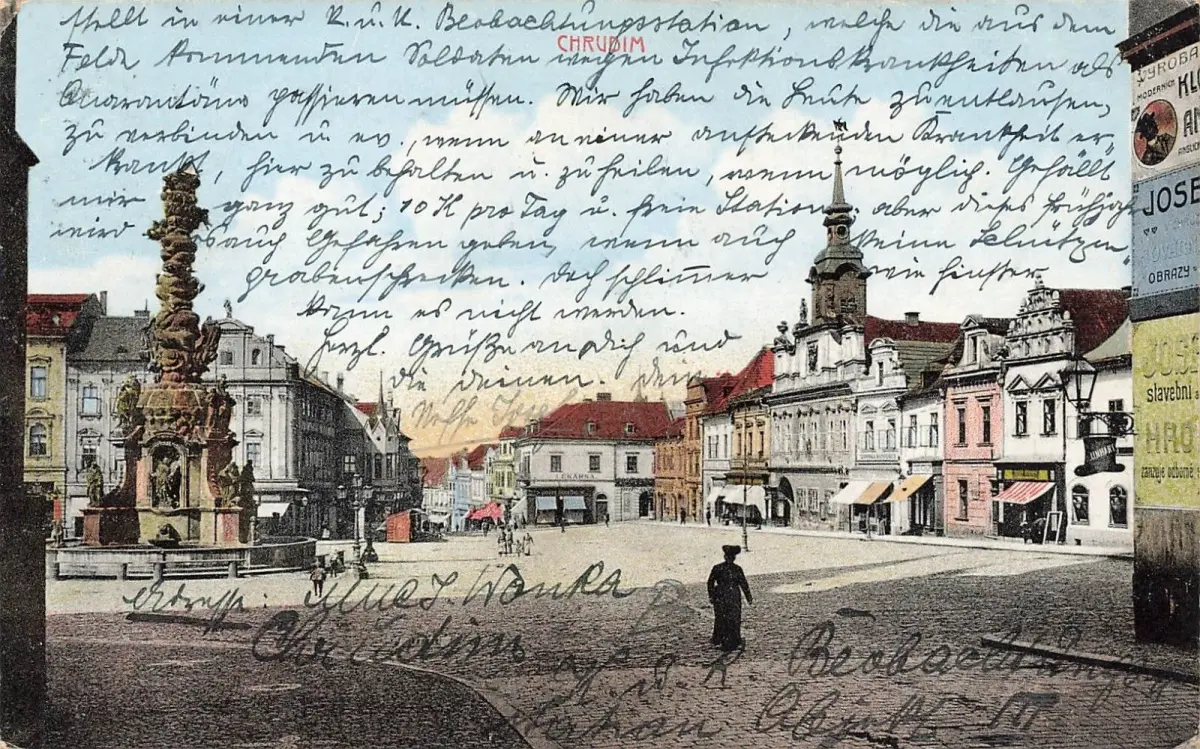 stellt in einer K. u. K. Beobachtungsstation, welche die aus dem
CHRUDIM
Felde kommenden Soldaten wegen Infektionskrankheiten als
Quarantäne passieren müssen. Wir haben die Leute zu entlausen,
zu verbinden u. ev., wenn an einer ansteckenden Krankheit er-
krankt, hier zu behalten u. zu heilen, wenn möglich. Gefällt
mir ganz gut; 10 K pro Tag u. freie Station, aber dieses Frühjahr
wird es auch Gefahren geben, wenn auch keine Schützen-
grabenschrecken. Doch schlimmer wie finster
kann es nicht werden.
Herzl. Grüße an Dich und
die deinen. Dein
Neffe
Adresse: MUC J. Wonka
Chrudim
K. u. K. Beobachtungs
Objekt III
VÝROBA
MODERNÍCH
JOSE
OBRAZY
LÉKÁRNA
JOSE
slavební
HRO